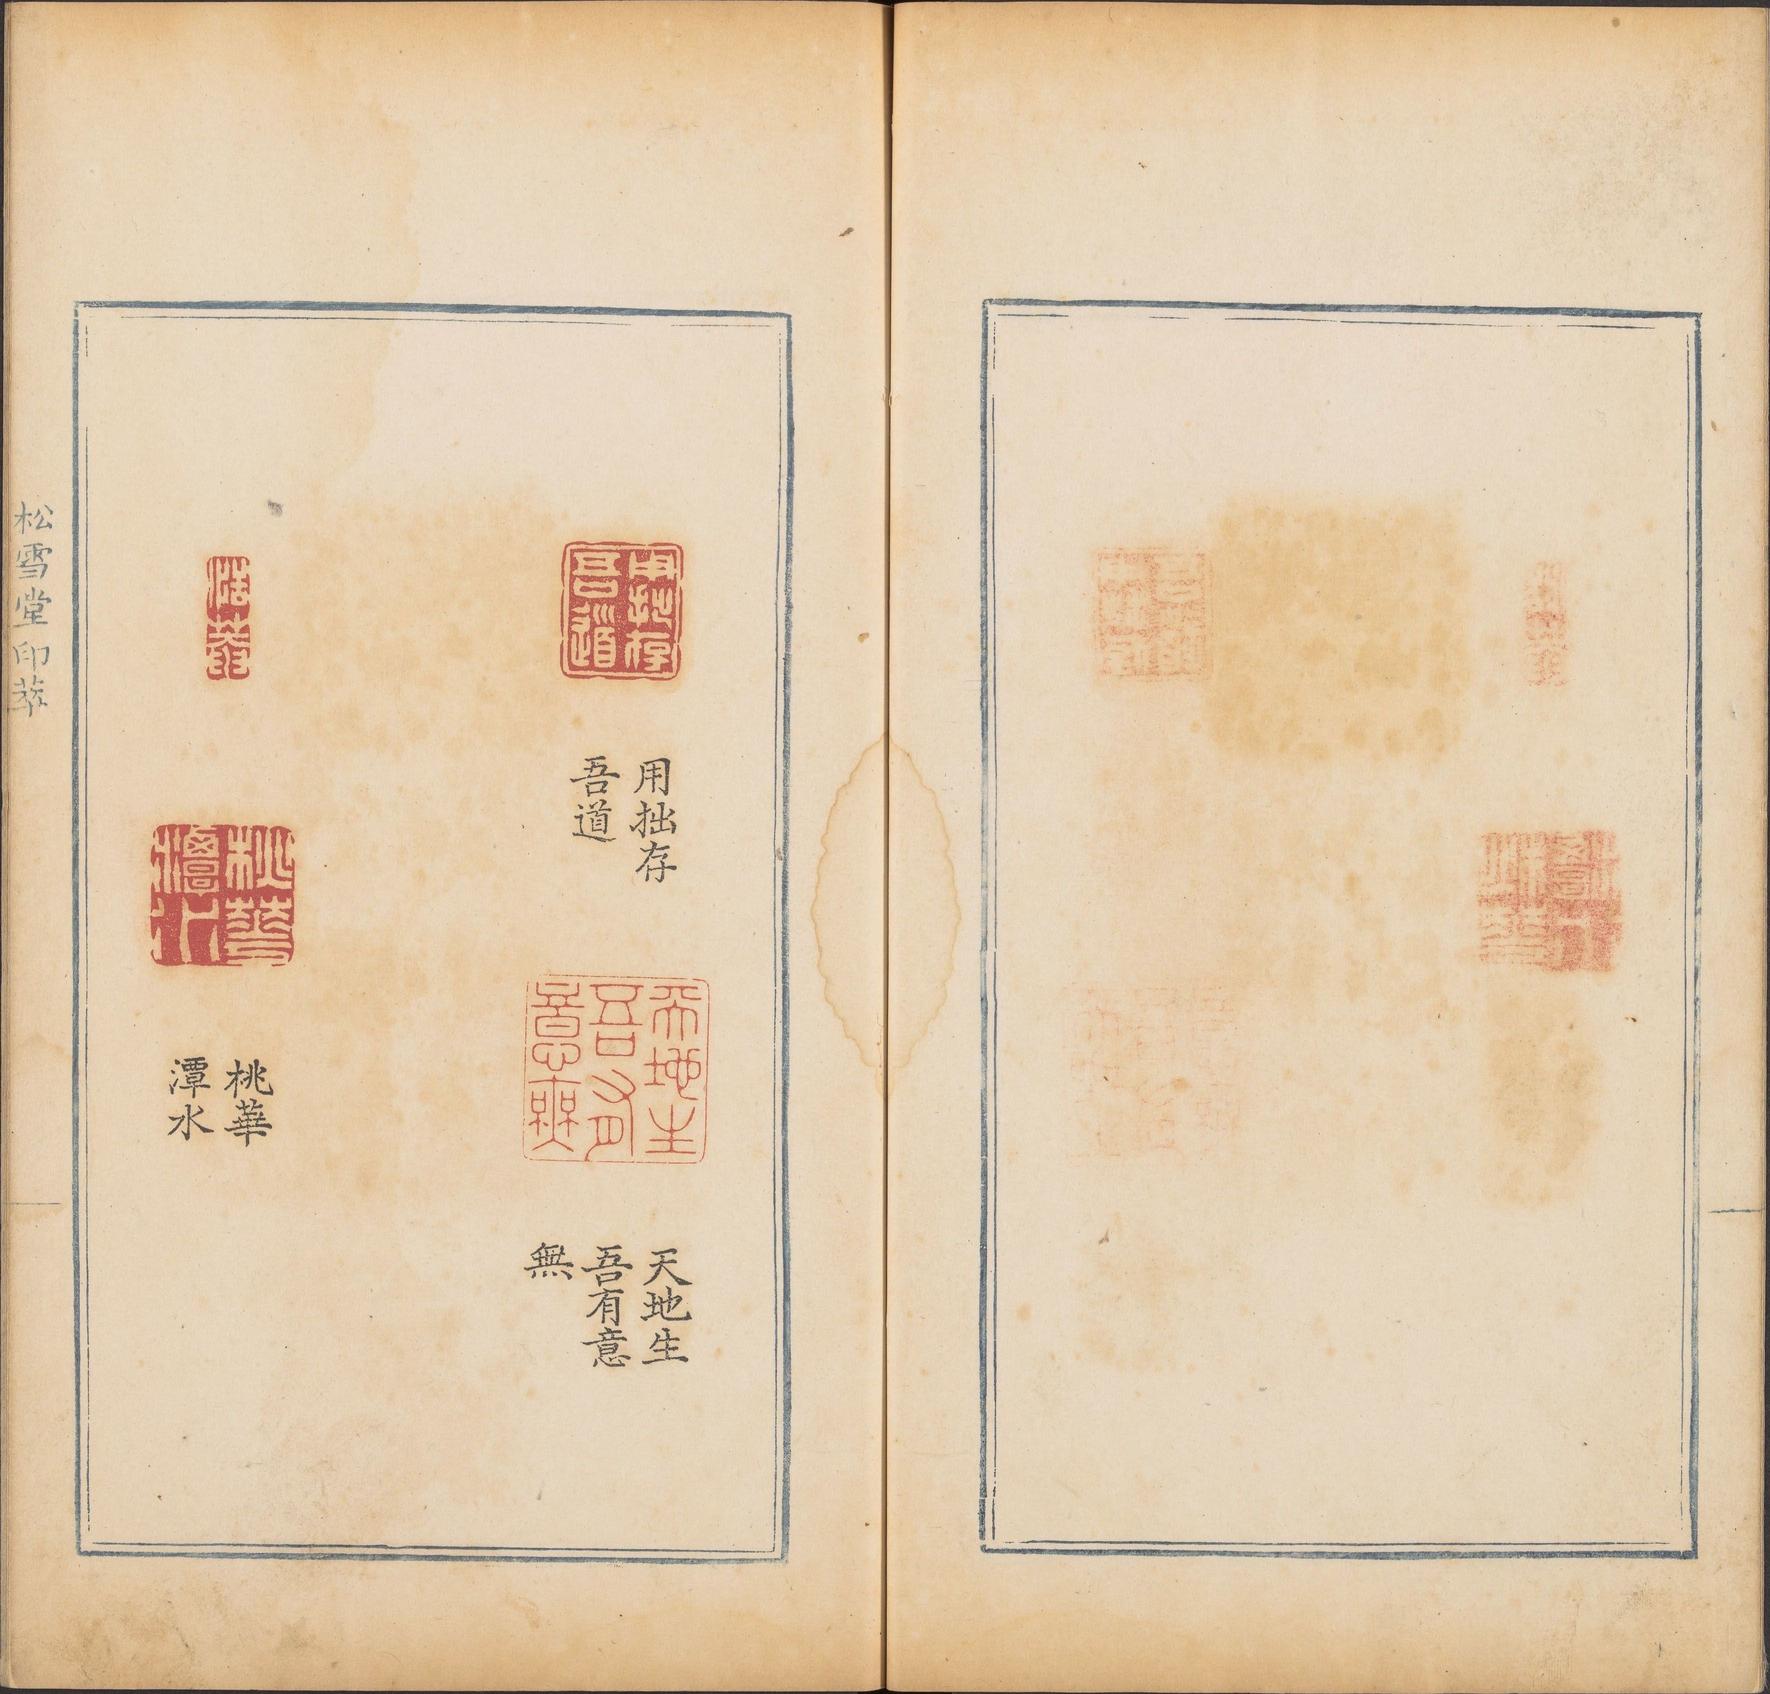 用拙存
吾道
用拙存
吾道
天地生
吾有
意無
天地生
吾有意
無
桃華
潭水
桃華
潭水
松雪堂印萃